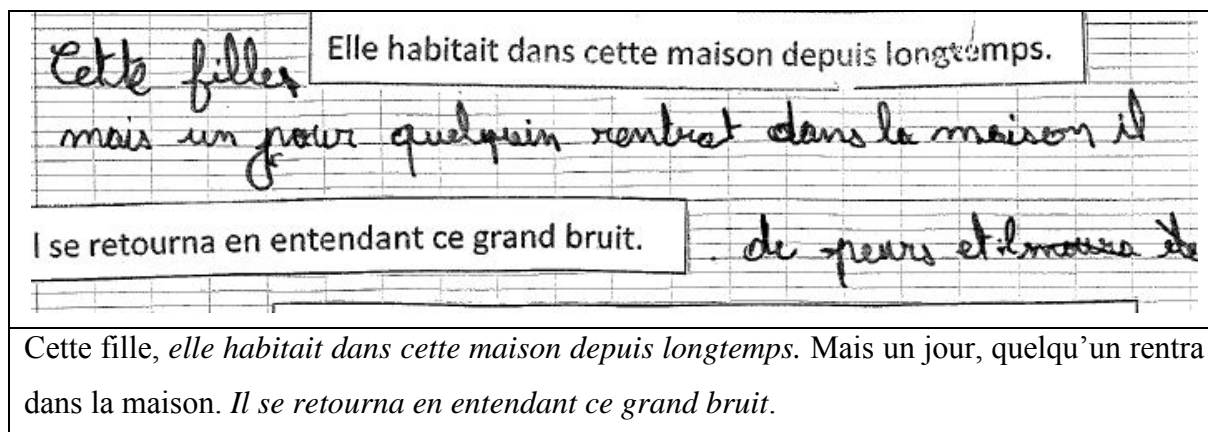 Elle habitait dans cette maison depuis longtemps.
Cette filles
mais un jour quelquin rentrat dans la maison il
l se retourna en entendant ce grand bruit.
. de peurs et il moura de
Cette fille, elle habitait dans cette maison depuis longtemps. Mais un jour, quelqu’un rentra
dans la maison. Il se retourna en entendant ce grand bruit.